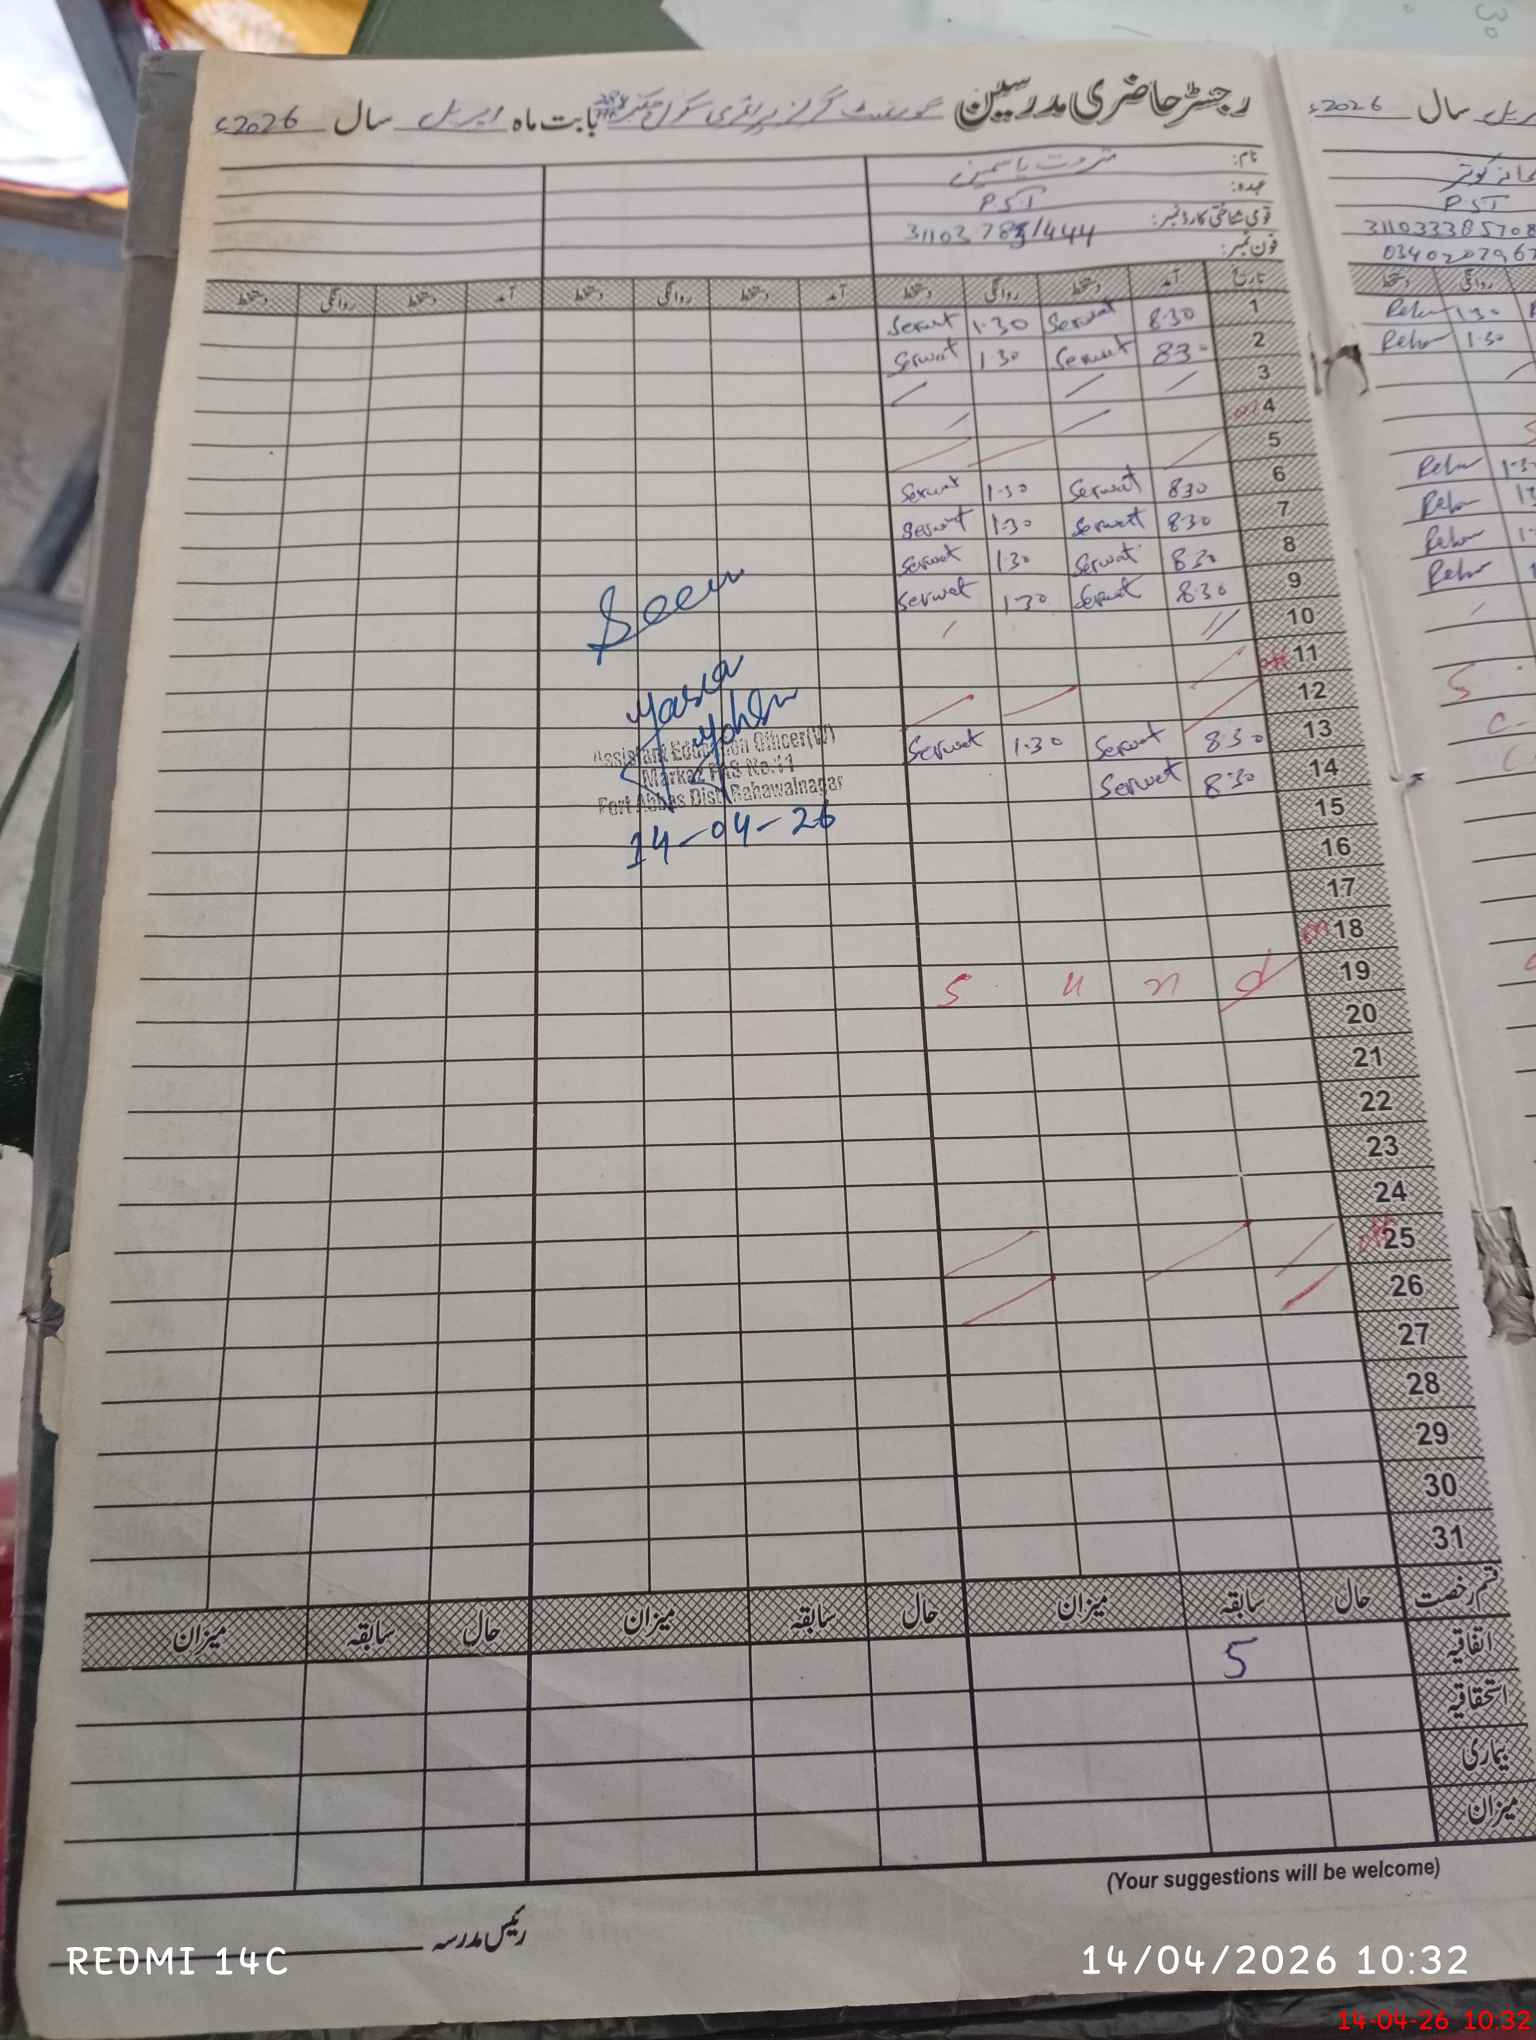 رجسٹر حاضری مدرسین گورنمنٹ گرلز پرائمری سکول بابت ماہ اپریل سال 2026ء
نام: ثروت یاسمین
عہدہ: PST
قومی شناختی کارڈ نمبر:
فون نمبر:
تاریخ آمد دستخط روانگی دستخط آمد دستخط روانگی دستخط آمد دستخط روانگی دستخط
1 8:30 Serwat 1:30 Serwat
2 8:30 Serwat 1:30 Serwat
3
4
5
6 8:30 Serwat 1:30 Serwat
7 8:30 Serwat 1:30 Serwat
8 8:30 Serwat 1:30 Serwat
9 8:30 Serwat 1:30 Serwat
10
11
12
13 8:30 Serwat 1:30 Serwat
14 8:30 Serwat
15
16
17
18
19 S u n d
20
21
22
23
24
25
26
27
28
29
30
31
Seen
Assistant Education Officer(W)
Markaz No.11
Fort Abbas Distt Bahawalnagar
14-04-26
قسم رخصت حال سابقہ میزان حال سابقہ میزان حال سابقہ میزان
اتفاقیہ 5
استحقاقیہ
بیماری
میزان
(Your suggestions will be welcome)
رئیس مدرسہ
سال 2026ء
PST
311033385708
Rehn 1:30
Rehn 1:30
Rehn
Rehn
Rehn
Rehn
REDMI 14C
14/04/2026 10:32
14-04-26 10:32